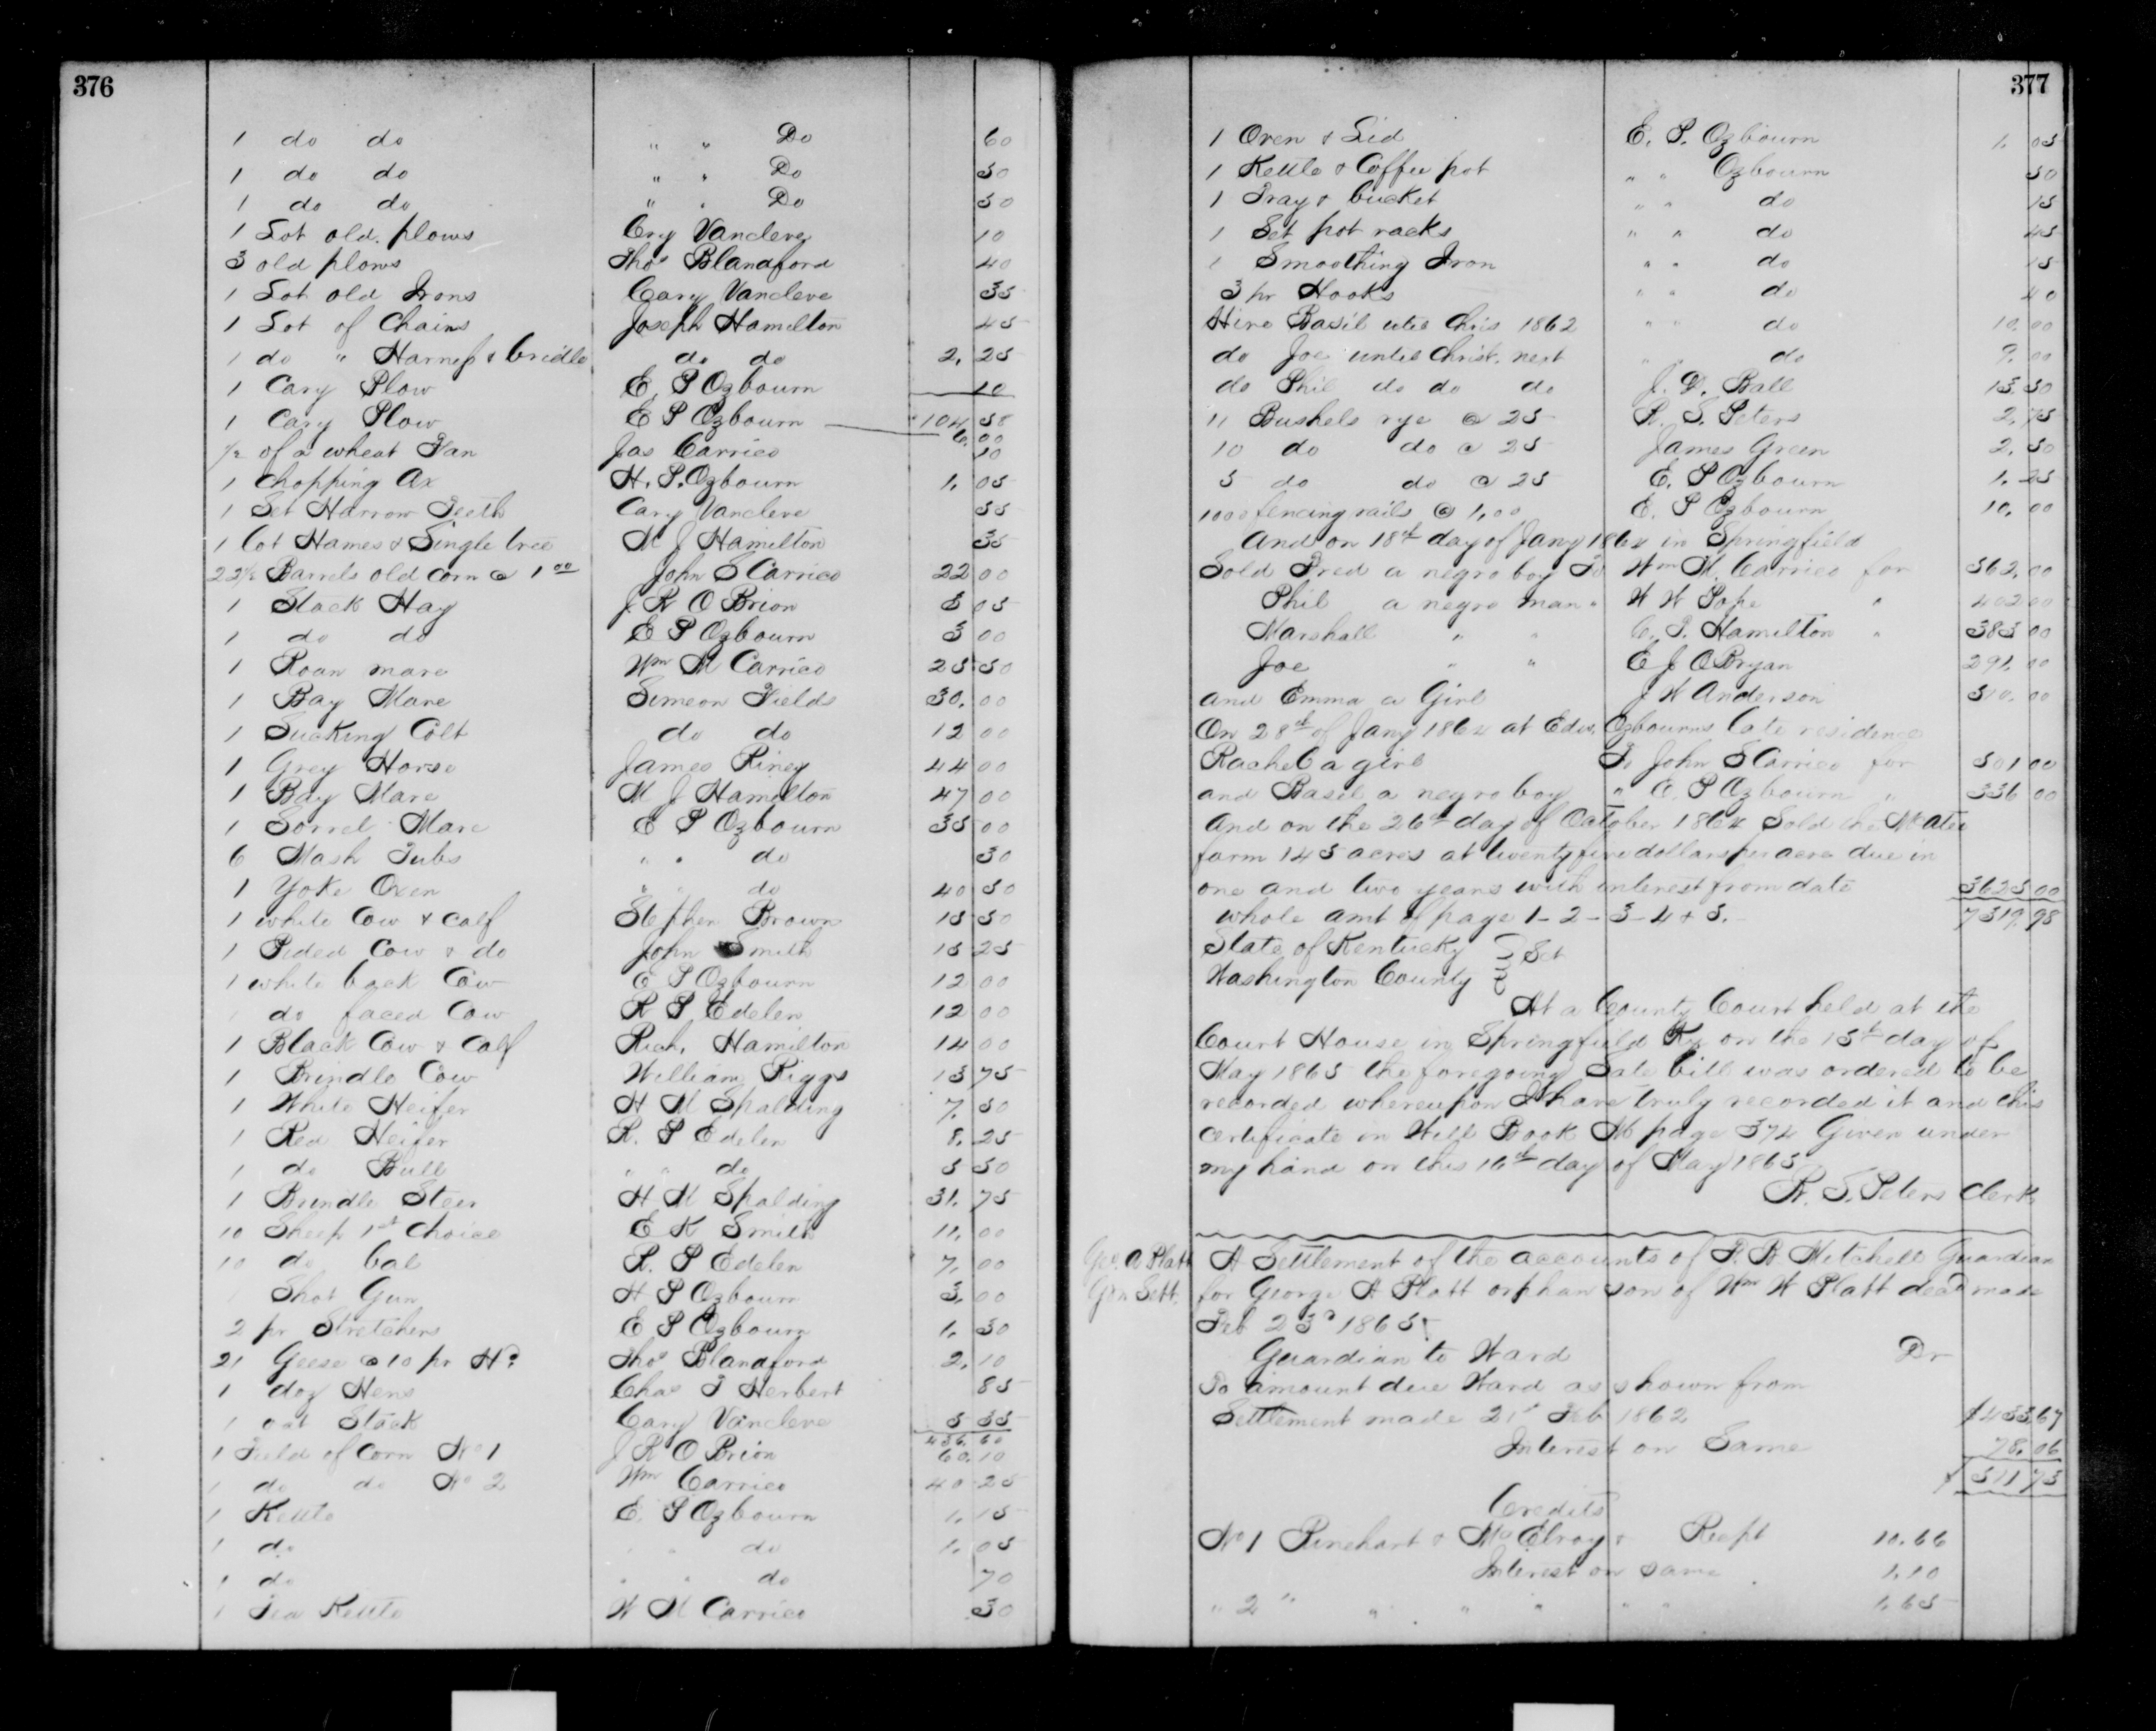 376
1 do do " " Do 60
1 do do " " Do 50
1 do do " " Do 50
1 Lot old plows Cry Vancleve 10
3 old plows Thos Blandford 40
1 Lot old Irons Cary Vancleve 35
1 Lot of Chains Joseph Hamilton 45
1 do " Harness & bridle do do 2.25
1 Cary Plow E. P Ozbourn 10
1 Cary Plow E P Ozbourn 104 58
6.00
½ of a wheat Fan Jas Carrico 10
1 Chopping Ax H. P. Ozbourn 1.05
1 Set Harrow Teeth Cary Vancleve 55
1 Lot Hames & Single tree M J Hamilton 35
22½ Barrels old corn @ 1 00 John S Carrico 22 00
1 Stack Hay J R O Brion 5 05
1 do do E P Ozbourn 3 00
1 Roan mare Wm M Carrico 25 50
1 Bay Mare Simeon Fields 30.00
1 Sucking Colt do do 12 00
1 Grey Horse James Riney 44 00
1 Bay Mare M J Hamilton 47 00
1 Sorrel Mare E P Ozbourn 35 00
6 Mash Tubs " " do 30
1 Yoke Oxen " " do 40 50
1 white Cow & calf Stephen Brown 15 50
1 Pided Cow & do John Smith 15 25
1 white back Cow E P Ozbourn 12 00
1 do faced Cow R P Edelen 12 00
1 Black Cow & Calf Rich. Hamilton 14 00
1 Brindle Cow William Riggs 15 75
1 White Heifer H M Spalding 7.50
1 Red Heifer R. P Edelen 8.25
1 do Bull " " do 5 50
1 Brindle Steer H M Spalding 31.75
10 Sheep 1st Choice E K Smith 11.00
10 do bal R. P Edelen 7.00
1 Shot Gun H P Ozbourn 3.00
2 pr Stretchers E P Ozbourn 1.30
21 Geese @ 10 pr Hd Thos Blandford 2.10
1 doz Hens Chas T Herbert 85
1 oat Stack Cary Vancleve 5 55
436.60
1 Field of Corn No 1 J R O Brion 60.10
1 do do No 2 Wm Carrico 40 25
1 Kettle E. P Ozbourn 1.15
1 do " " do 1.05
1 do " " do 70
1 Tea Kettle W M Carrico .30
377
1 Oven & Lid E. P. Ozbourn 1.05
1 Kettle & Coffee pot " " Ozbourn 50
1 Tray & bucket " " do 15
1 Set pot racks " " do 45
1 Smoothing Iron " " do 15
3 pr Hooks " " do 40
Hire Basil util Chris 1862 " " do 10.00
do Joe until Christ. next " " do 9.00
do Phil do do do J. D. Ball 13.50
11 Bushels rye @ 25 R. S. Peters 2.75
10 do do @ 25 James Green 2.50
5 do do @ 25 E. P Ozbourn 1.25
1000 fencing rails @ 1.00 E P Ozbourn 10.00
And on 18th day of Jany 1864 in Springfield
Sold Fred a negro boy To Wm M. Carrico for 562.00
Phil a negro man " W W Pope " 402 00
Marshall " " C. P. Hamilton " 383 00
Joe " " E J O Bryan 291.00
and Emma a Girl J W Anderson 510.00
On 28th of Jany 1864 at Edw. Ozbourns late residence
Rachel a girl To John S Carrico for 501 00
and Basil a negro boy " E. P Ozbourn " 336 00
And on the 26th day of October 1864 Sold the McAtee
farm 145 acres at twenty five dollars per acre due in
one and two years with interest from date 3625 00
whole amt of page 1-2-3-4 & 5. 7319.98
State of Kentucky } Sct
Washington County }
At a County Court held at the
Court House in Springfield Ky on the 15th day of
May 1865 the foregoing Sale bill was ordered to be
recorded whereupon I have truly recorded it and this
certificate in Will Book M page 374 Given under
my hand on this 16th day of May 1865
R. S. Peters Clerk
Geo. A Platt
Gdn Sett.
A Settlement of the accounts of P. B Mitchell Guardian
for George A Platt orphan son of Wm W Platt decd made
Feb 23d 1865
Guardian to Ward Dr
To amount due Ward as shown from
Settlement made 21st Feb 1862 $433.67
Interest on Same 78.06
$511 73
Credits
No 1 Rinehart & McElroy & Recpt 10.66
Interest on same 1.10
" 2 " " " " " " 1.65